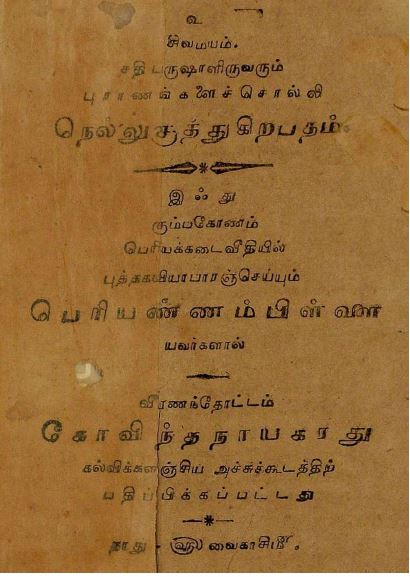 உ
சிவமயம்.
சதிபருஷாளிருவரும்
புராணங்களைச்சொல்லி
நெல்லுகுத்துகிறபதம்.
இஃது
கும்பகோணம்
பெரியக்கடைவீதியில்
புத்தகவியாபாரஞ்செய்யும்
பெரியண்ணம்பிள்ளை
யவர்களால்
வீரணந்தோட்டம்
கோவிந்தநாயகரது
கல்விக்களஞ்சிய அச்சுக்கூடத்திற்
பதிப்பிக்கப்பட்டது
வைகாசிமீ.